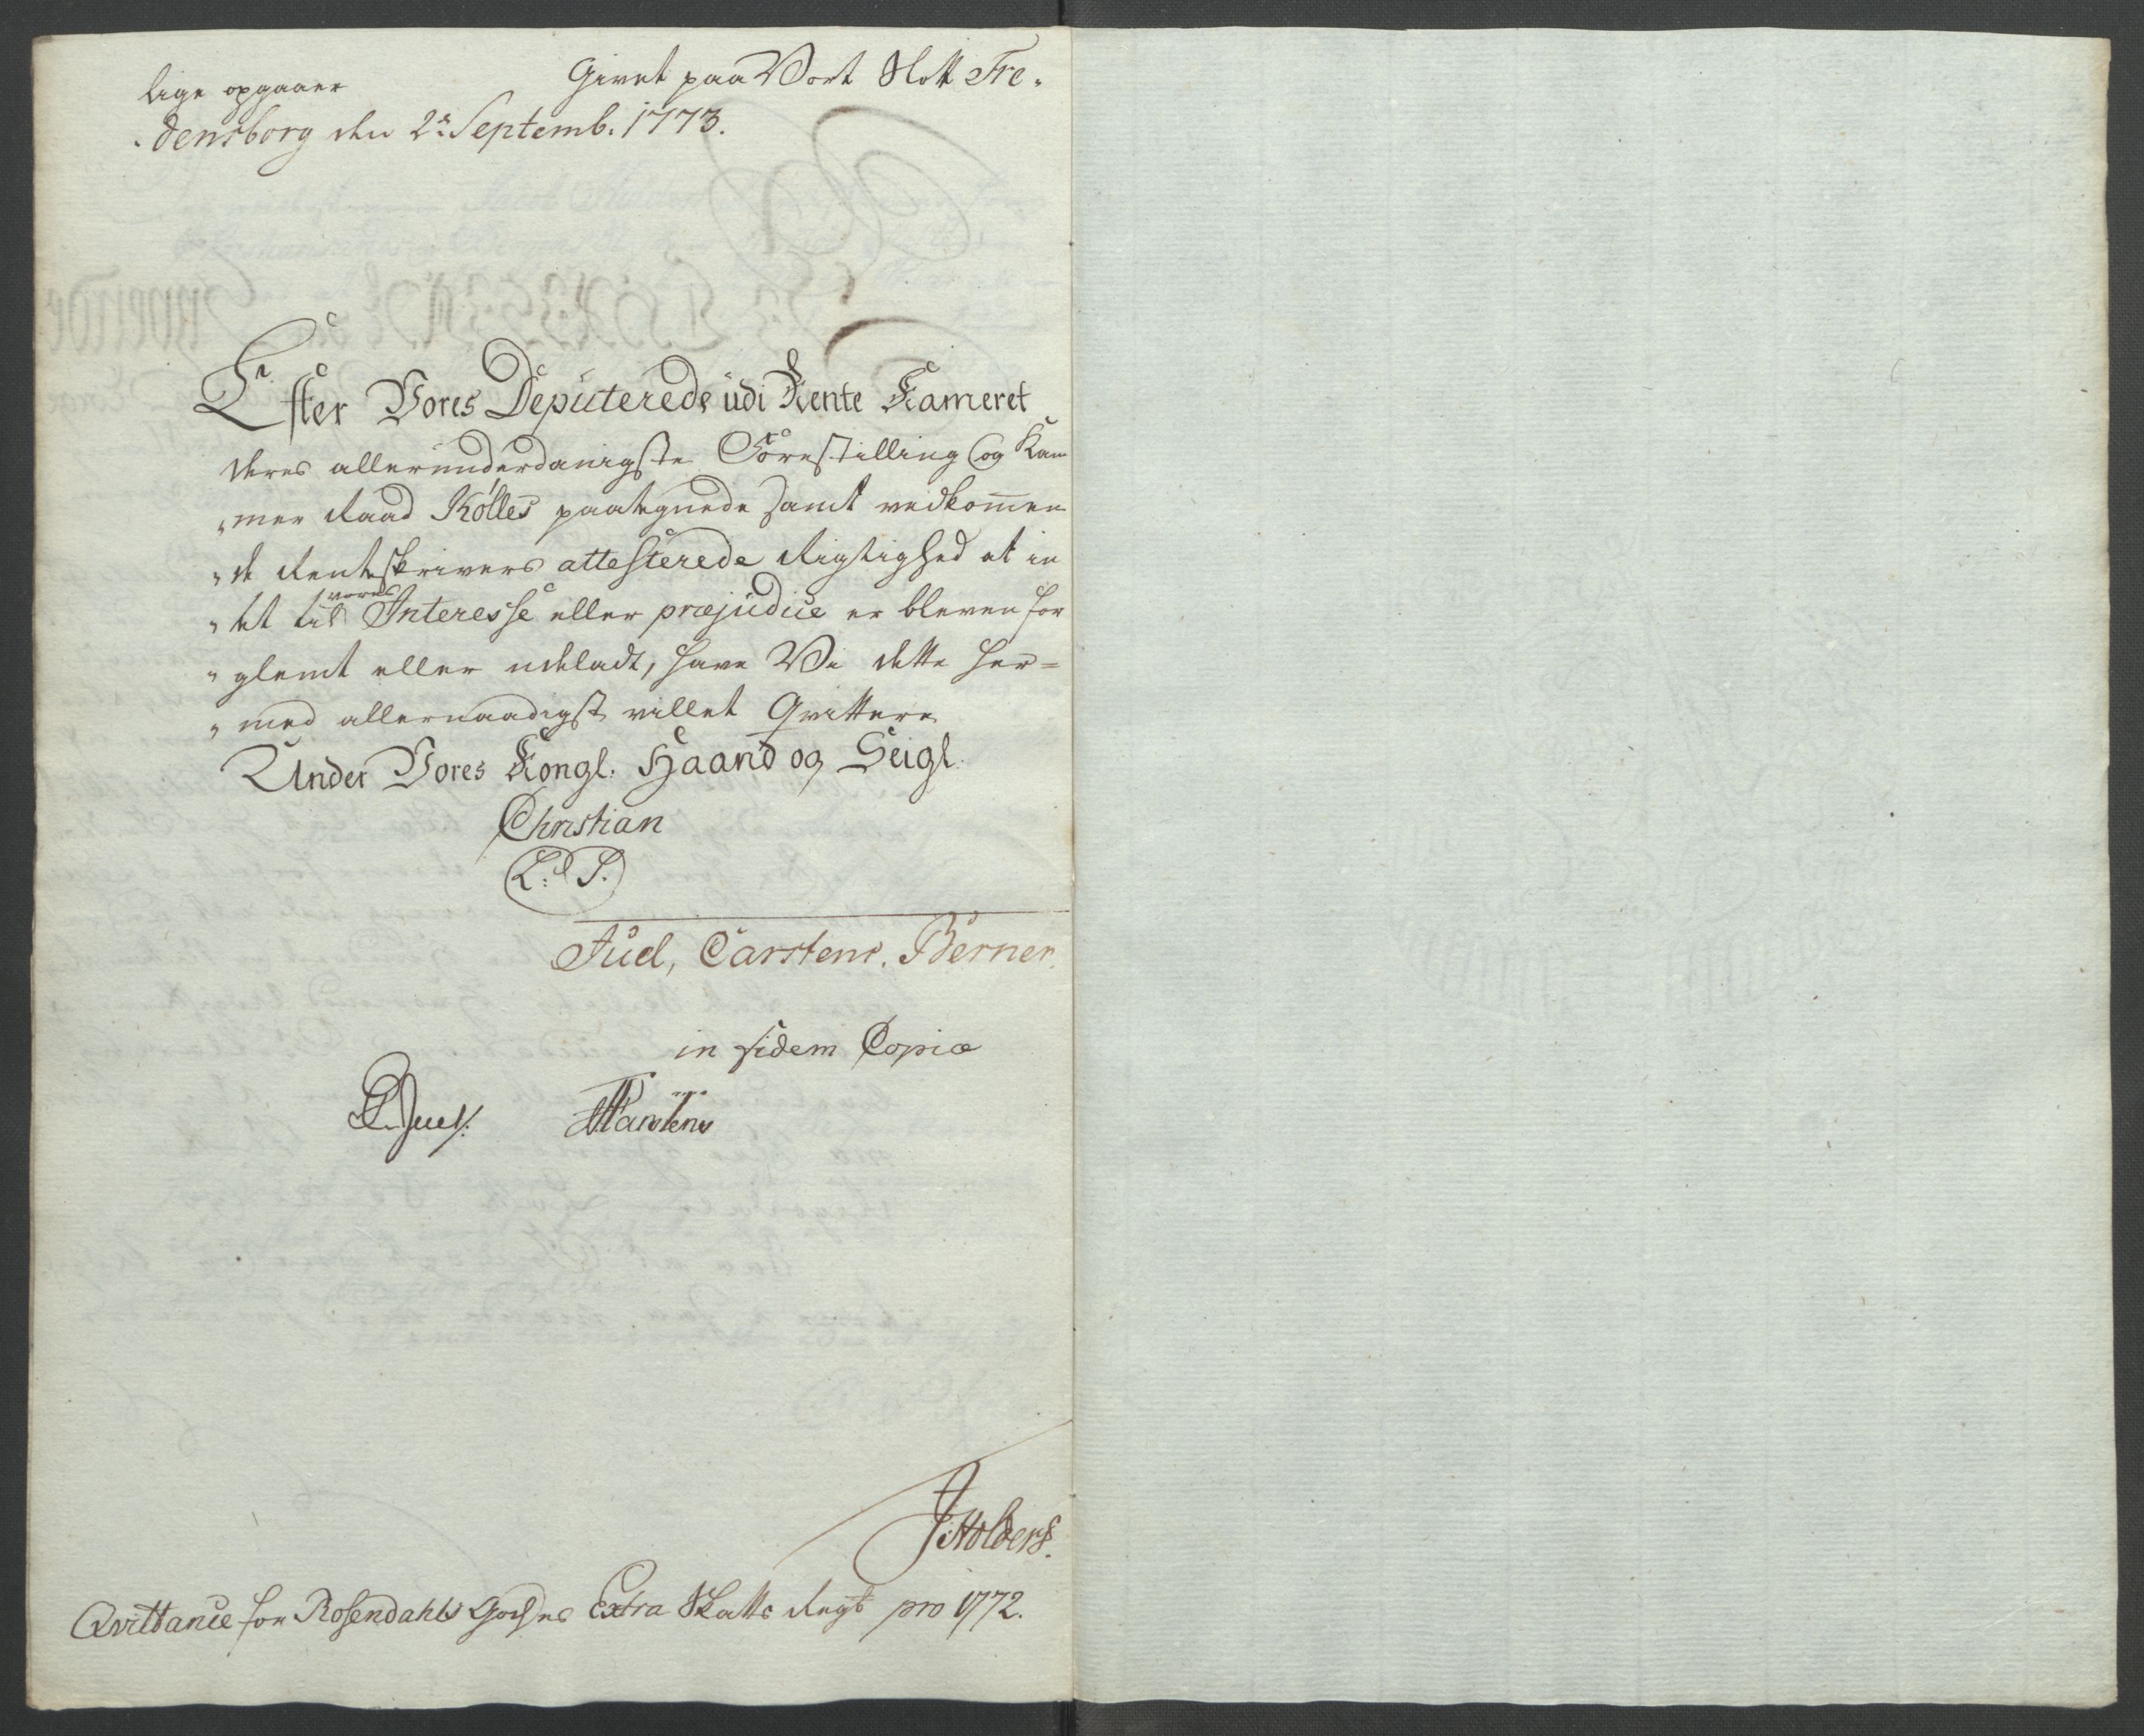 lige opgaaer Givet paa Vort Slott Fre„
„densborg den 2de Septemb. 1773.
Efter Vores Deputerede udi Rente Kameret
deres allerunderdanigste Forestilling og Kam
„mer Raad Kølles paategnede samt vedkommen
„de Renteskrivers attesterede Rigtighed at in
„tet til vores Interesse eller præjudice er bleven for
„glemt eller udeladt, have Vi dette her=
„med allernaadigst villet Qvittere
Under Vores Kongl: Haand og Seigl.
Christian
L: S.
Juel, Carstens. Berner.
in fidem Copiæ
Juel:
Carstens
JHolders.
Qvittance for Rosendahls Godses Extra Skatts Regt pro 1772.